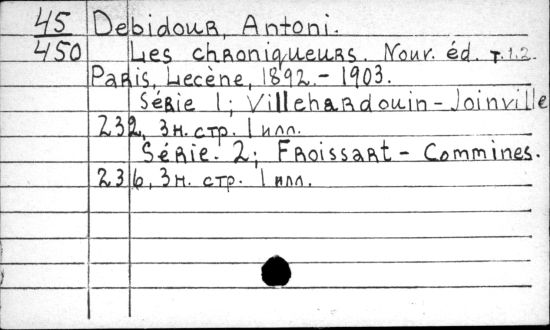 45 Debidour, Antoni.
450 Les chroniqueurs. Nouv. éd. т.1.2.
Paris, Lecène, 1892.- 1903.
Série 1; Villehardouin-Joinville
232, 3н. стр. 1 илл.
Série. 2; Froissart - Commines.
236, 3н. стр. 1 илл.